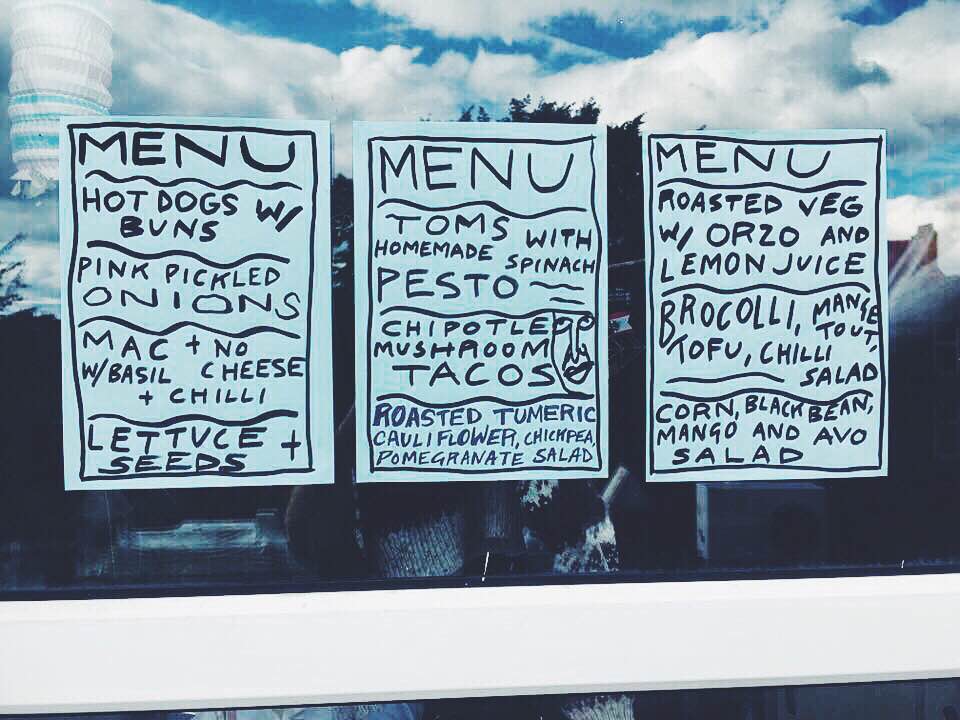 MENU
HOT DOGS W/
BUNS
PINK PICKLED
ONIONS
MAC + NO
W/BASIL CHEESE
+ CHILLI
LETTUCE +
SEEDS
MENU
TOMS
HOMEMADE WITH
SPINACH
PESTO
CHIPOTLE
MUSHROOM
TACOS
ROASTED TUMERIC
CAULIFLOWER, CHICKPEA,
POMEGRANATE SALAD
MENU
ROASTED VEG
W/ ORZO AND
LEMON JUICE
BROCOLLI, MANGE
TOUT,
TOFU, CHILLI
SALAD
CORN, BLACK BEAN,
MANGO AND AVO
SALAD